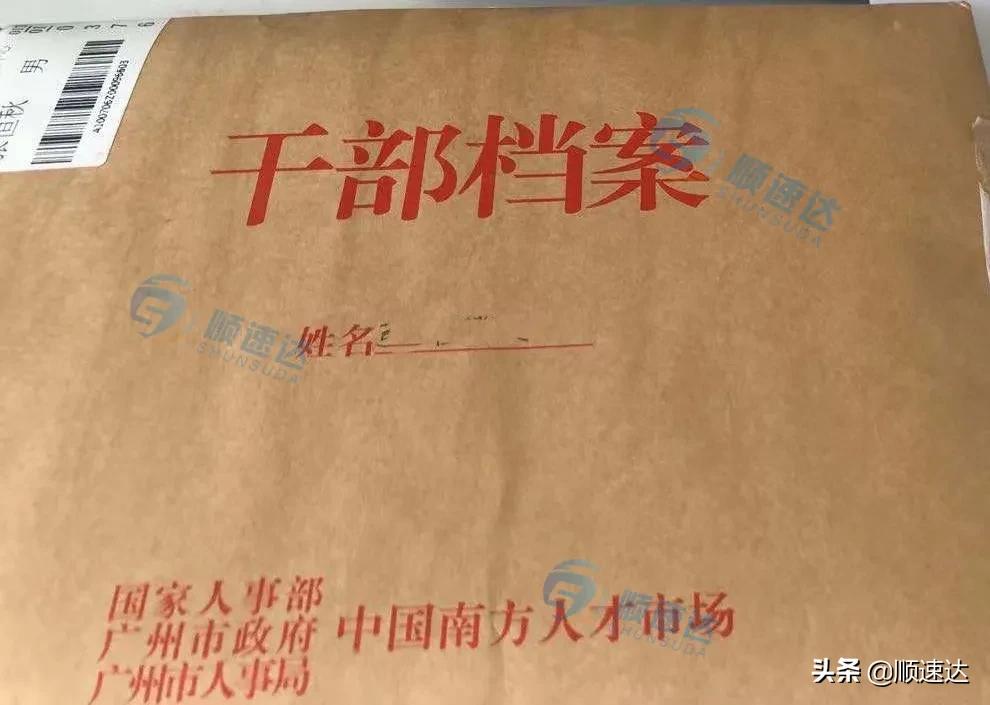 干部档案
姓名
国家人事部
广州市政府
广州市人事局
中国南方人才市场
男
4100706Z00096603
顺速达
SHUNSUDA
顺速达
SHUNSUDA
顺速达
SHUNSUDA
头条 @顺速达